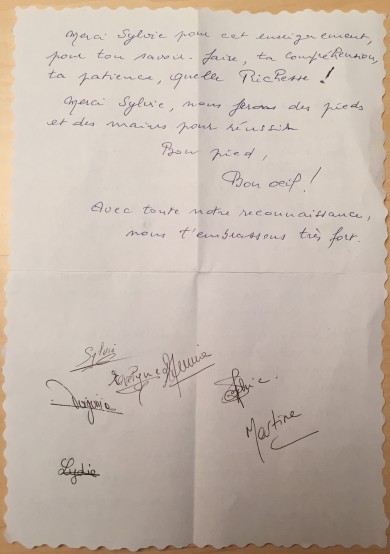 Merci Sylvie pour cet enseignement,
pour ton savoir-faire, ta compréhension,
ta patience, quelle Richesse !
Merci Sylvie, nous ferons des pieds
et des mains pour réussir
Bon pied,
Bon oeil !
Avec toute notre reconnaissance,
nous t'embrassons très fort.
Sylvie
Virginia
Sylvie.
Martine
Lydie